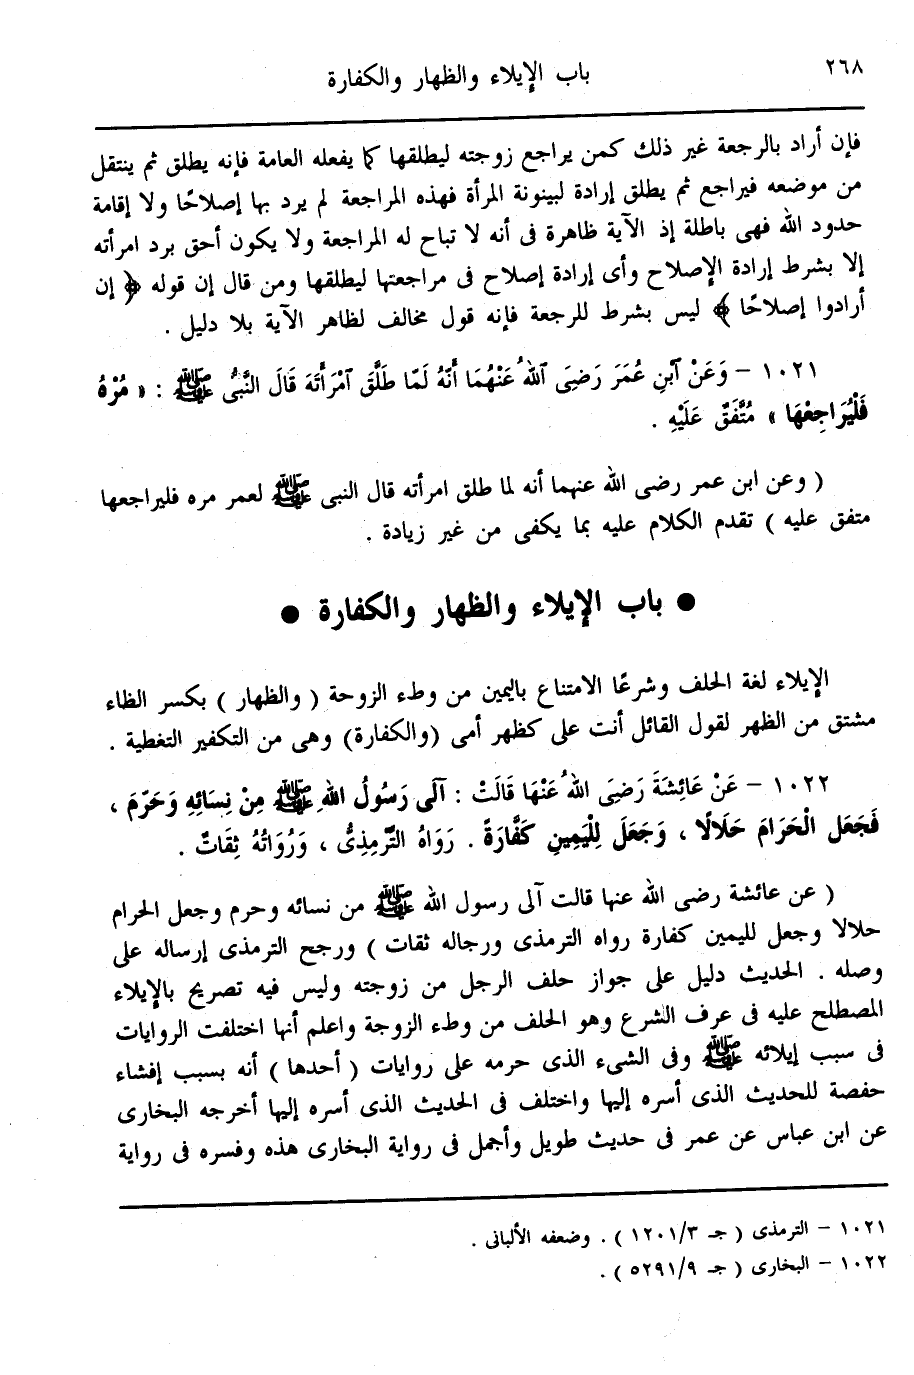 ٢٦٨
باب الإيلاء والظهار والكفارة
فإن أراد بالرجعة غير ذلك كمن يراجع زوجته ليطلقها كما يفعله العامة فإنه يطلق ثم ينتقل
من موضعه فيراجع ثم يطلق إرادة لبينونة المرأة فهذه المراجعة لم يرد بها إصلاحًا ولا إقامة
حدود الله فهى باطلة إذ الآية ظاهرة فى أنه لا تباح له المراجعة ولا يكون أحق برد امرأته
إلا بشرط إرادة الإصلاح وأى إرادة إصلاح فى مراجعتها ليطلقها ومن قال إن قوله ﴿ إن
أرادوا إصلاحًا ﴾ ليس بشرط للرجعة فإنه قول مخالف لظاهر الآية بلا دليل .
١٠٢١ – وَعَنْ آبْنِ عُمَرَ رَضِىَ آللهُ عَنْهُمَا أَنَّهُ لَمّا طَلَّقَ آمْرَأَتَهُ قَالَ النَّبِىُّ ﷺ : « مُرْهُ
فَلْيُرَاجِعْهَا » مُتَّفَقٌ عَلَيْهِ .
( وعن ابن عمر رضى الله عنهما أنه لما طلق امرأته قال النبى ﷺ لعمر مره فليراجعها
متفق عليه ) تقدم الكلام عليه بما يكفى من غير زيادة .
● باب الإيلاء والظهار والكفارة ●
الإيلاء لغة الحلف وشرعًا الامتناع باليمين من وطء الزوحة ( والظهار ) بكسر الظاء
مشتق من الظهر لقول القائل أنت على كظهر أمى (والكفارة) وهى من التكفير التغطية .
١٠٢٢ – عَنْ عَائِشَةَ رَضِىَ اللهُ عَنْهَا قَالَتْ : آلَى رَسُولُ اللهِ ﷺ مِنْ نِسَائِهِ وَحَرّمَ ،
فَجَعَل الْحَرَامَ حَلَالًا ، وَجَعَلَ لِلْيَمِينِ كَفَّارَةً . رَوَاهُ التّرْمِذِىُّ ، وَرُوَاتُهُ ثِقَاتٌ .
( عن عائشة رضى الله عنها قالت آلى رسول الله ﷺ من نسائه وحرم وجعل الحرام
حلالا وجعل لليمين كفارة رواه الترمذى ورجاله ثقات ) ورجح الترمذى إرساله على
وصله . الحديث دليل على جواز حلف الرجل من زوجته وليس فيه تصريح بالإيلاء
المصطلح عليه فى عرف الشرع وهو الحلف من وطء الزوجة واعلم أنها اختلفت الروايات
فى سبب إيلائه ﷺ وفى الشىء الذى حرمه على روايات ( أحدها ) أنه بسبب إفشاء
حفصة للحديث الذى أسره إليها واختلف فى الحديث الذى أسره إليها أخرجه البخارى
عن ابن عباس عن عمر فى حديث طويل وأجمل فى رواية البخارى هذه وفسره فى رواية
١٠٢١ – الترمذى ( جـ ١٢٠١/٣ ) . وضعفه الألبانى .
١٠٢٢ – البخارى ( جـ ٥٢٩١/٩ ) .